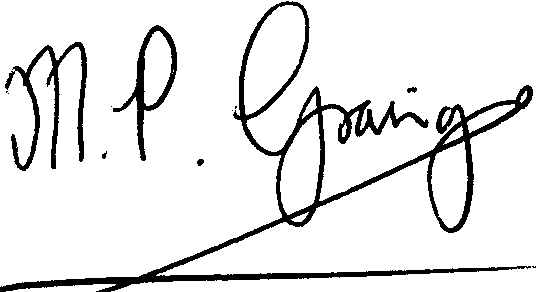 M. P. Graing